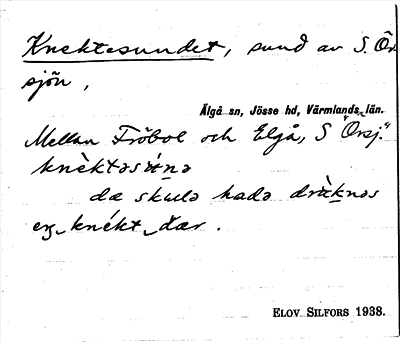 Knektesundet, sund av S. Ör
sjön,
Älgå sn, Jösse hd, Värmlands län.
Mellan Fröbol och Elgå, S "Örsj."
knὲktəsúnə
dæ skulə hadə drὲknəs
en knékt dær.
ELOV SILFORS 1938.